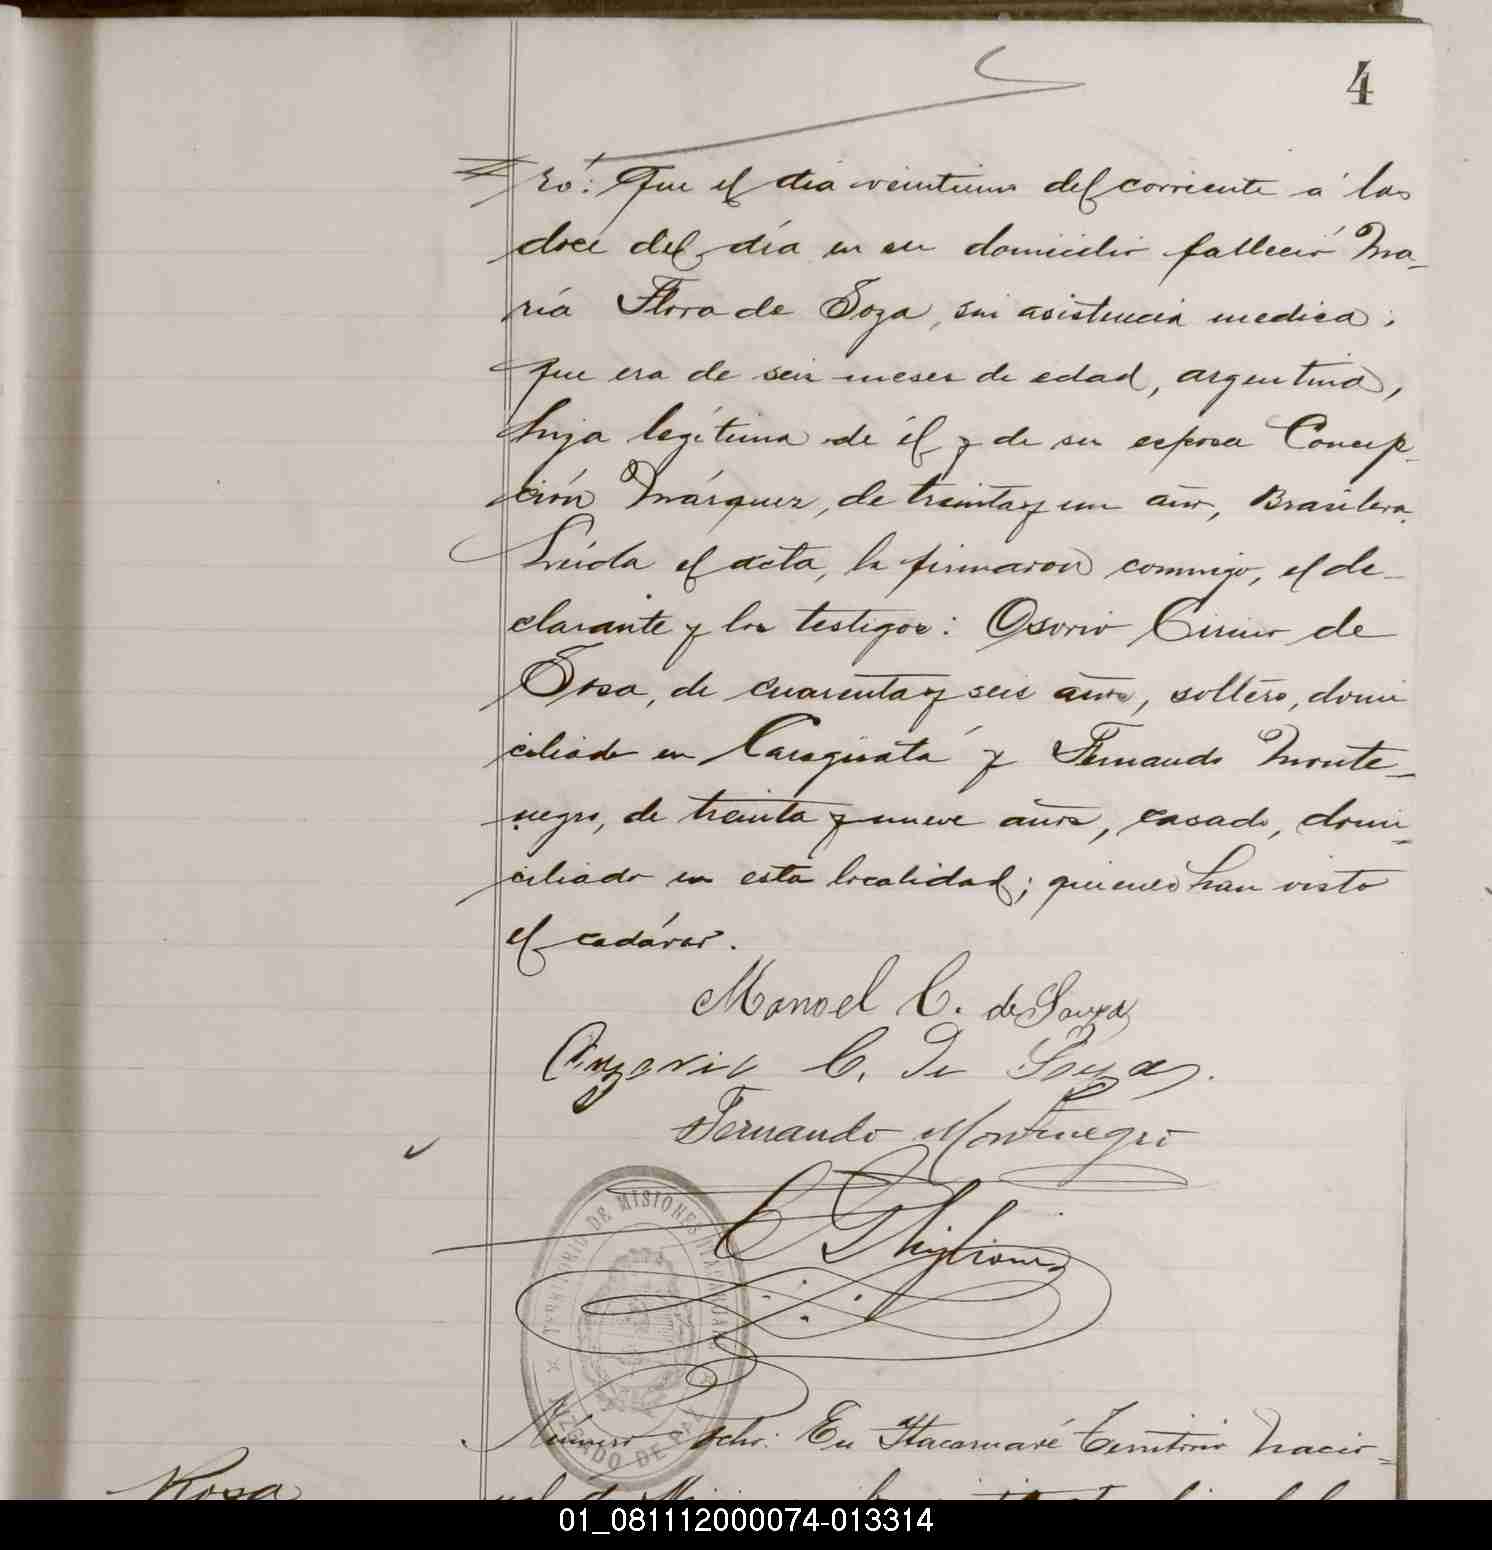 4
ró: Que el día veintiuno del corriente á las
doce del día en su domicilio falleció Ma-
ría Flora de Soza, sin asistencia medica;
que era de seis meses de edad, argentina,
hija legítima de él y de su esposa Concep-
ción Márquez, de treinta y un año, Brasilera.
Leída el acta, la firmaron conmigo, el de-
clarante y los testigos: Osorio Cirino de
Sosa, de cuarenta y seis años, soltero, domi
ciliado en Caraguatá y Fernando Monte-
negro, de treinta y nueve años, casado, domi-
ciliado en esta localidad; quienes han visto
el cadáver.
Manoel C. de Souza
C. de Souza.
Fernando Montenegro
C Ghiglione
TERRITORIO DE MISIONES
JUZGADO DE PAZ
Número ocho: En Itacaruaré Territorio Nacio-
Rosa
nal de Misiones
01_081112000074-013314